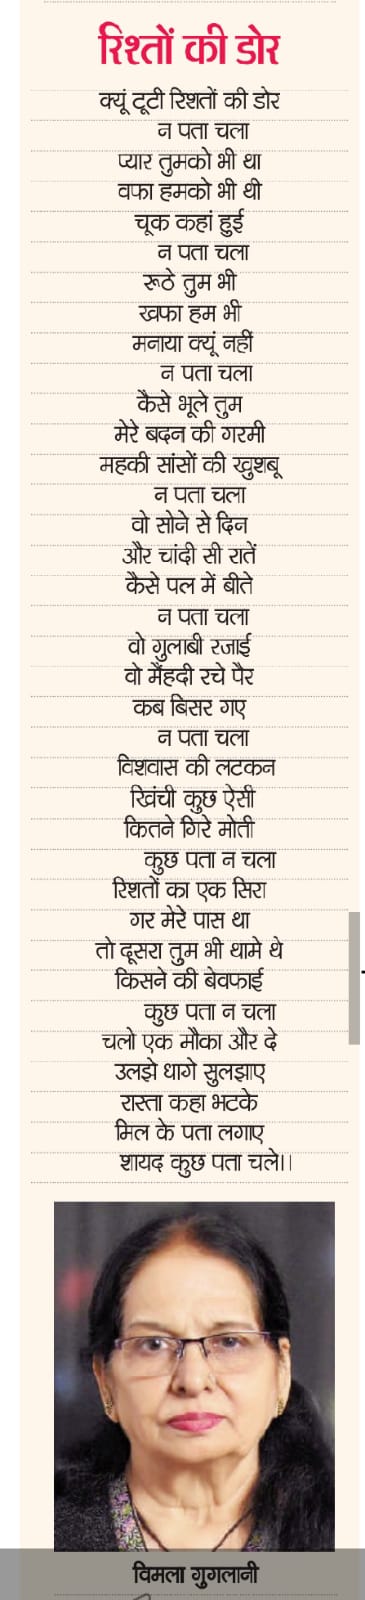 रिश्तों की डोर
क्यूं टूटी रिशतों की डोर
न पता चला
प्यार तुमको भी था
वफा हमको भी थी
चूक कहां हुई
न पता चला
रूठे तुम भी
खफा हम भी
मनाया क्यूं नहीं
न पता चला
कैसे भूले तुम
मेरे बदन की गरमी
महकी सांसों की खुशबू
न पता चला
वो सोने से दिन
और चांदी सी रातें
कैसे पल में बीते
न पता चला
वो गुलाबी रजाई
वो मैंहदी रचे पैर
कब बिसर गए
न पता चला
विशवास की लटकन
खिंची कुछ ऐसी
कितने गिरे मोती
कुछ पता न चला
रिशतों का एक सिरा
गर मेरे पास था
तो दूसरा तुम भी थामे थे
किसने की बेवफाई
कुछ पता न चला
चलो एक मौका और दे
उलझे धागे सुलझाए
रास्ता कहा भटके
मिल के पता लगाए
शायद कुछ पता चले।।
विमला गुगलानी